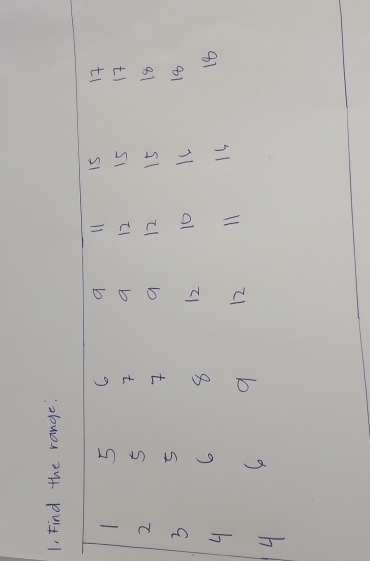 1. Find the range:
1 5 6 9 11 15 17
2 5 7 9 12 15 17
3 5 7 9 12 15 18
4 6 8 12 10 14 18
4 6 9 12 11 14 18